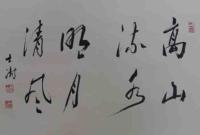 高山
流水
明月
清风